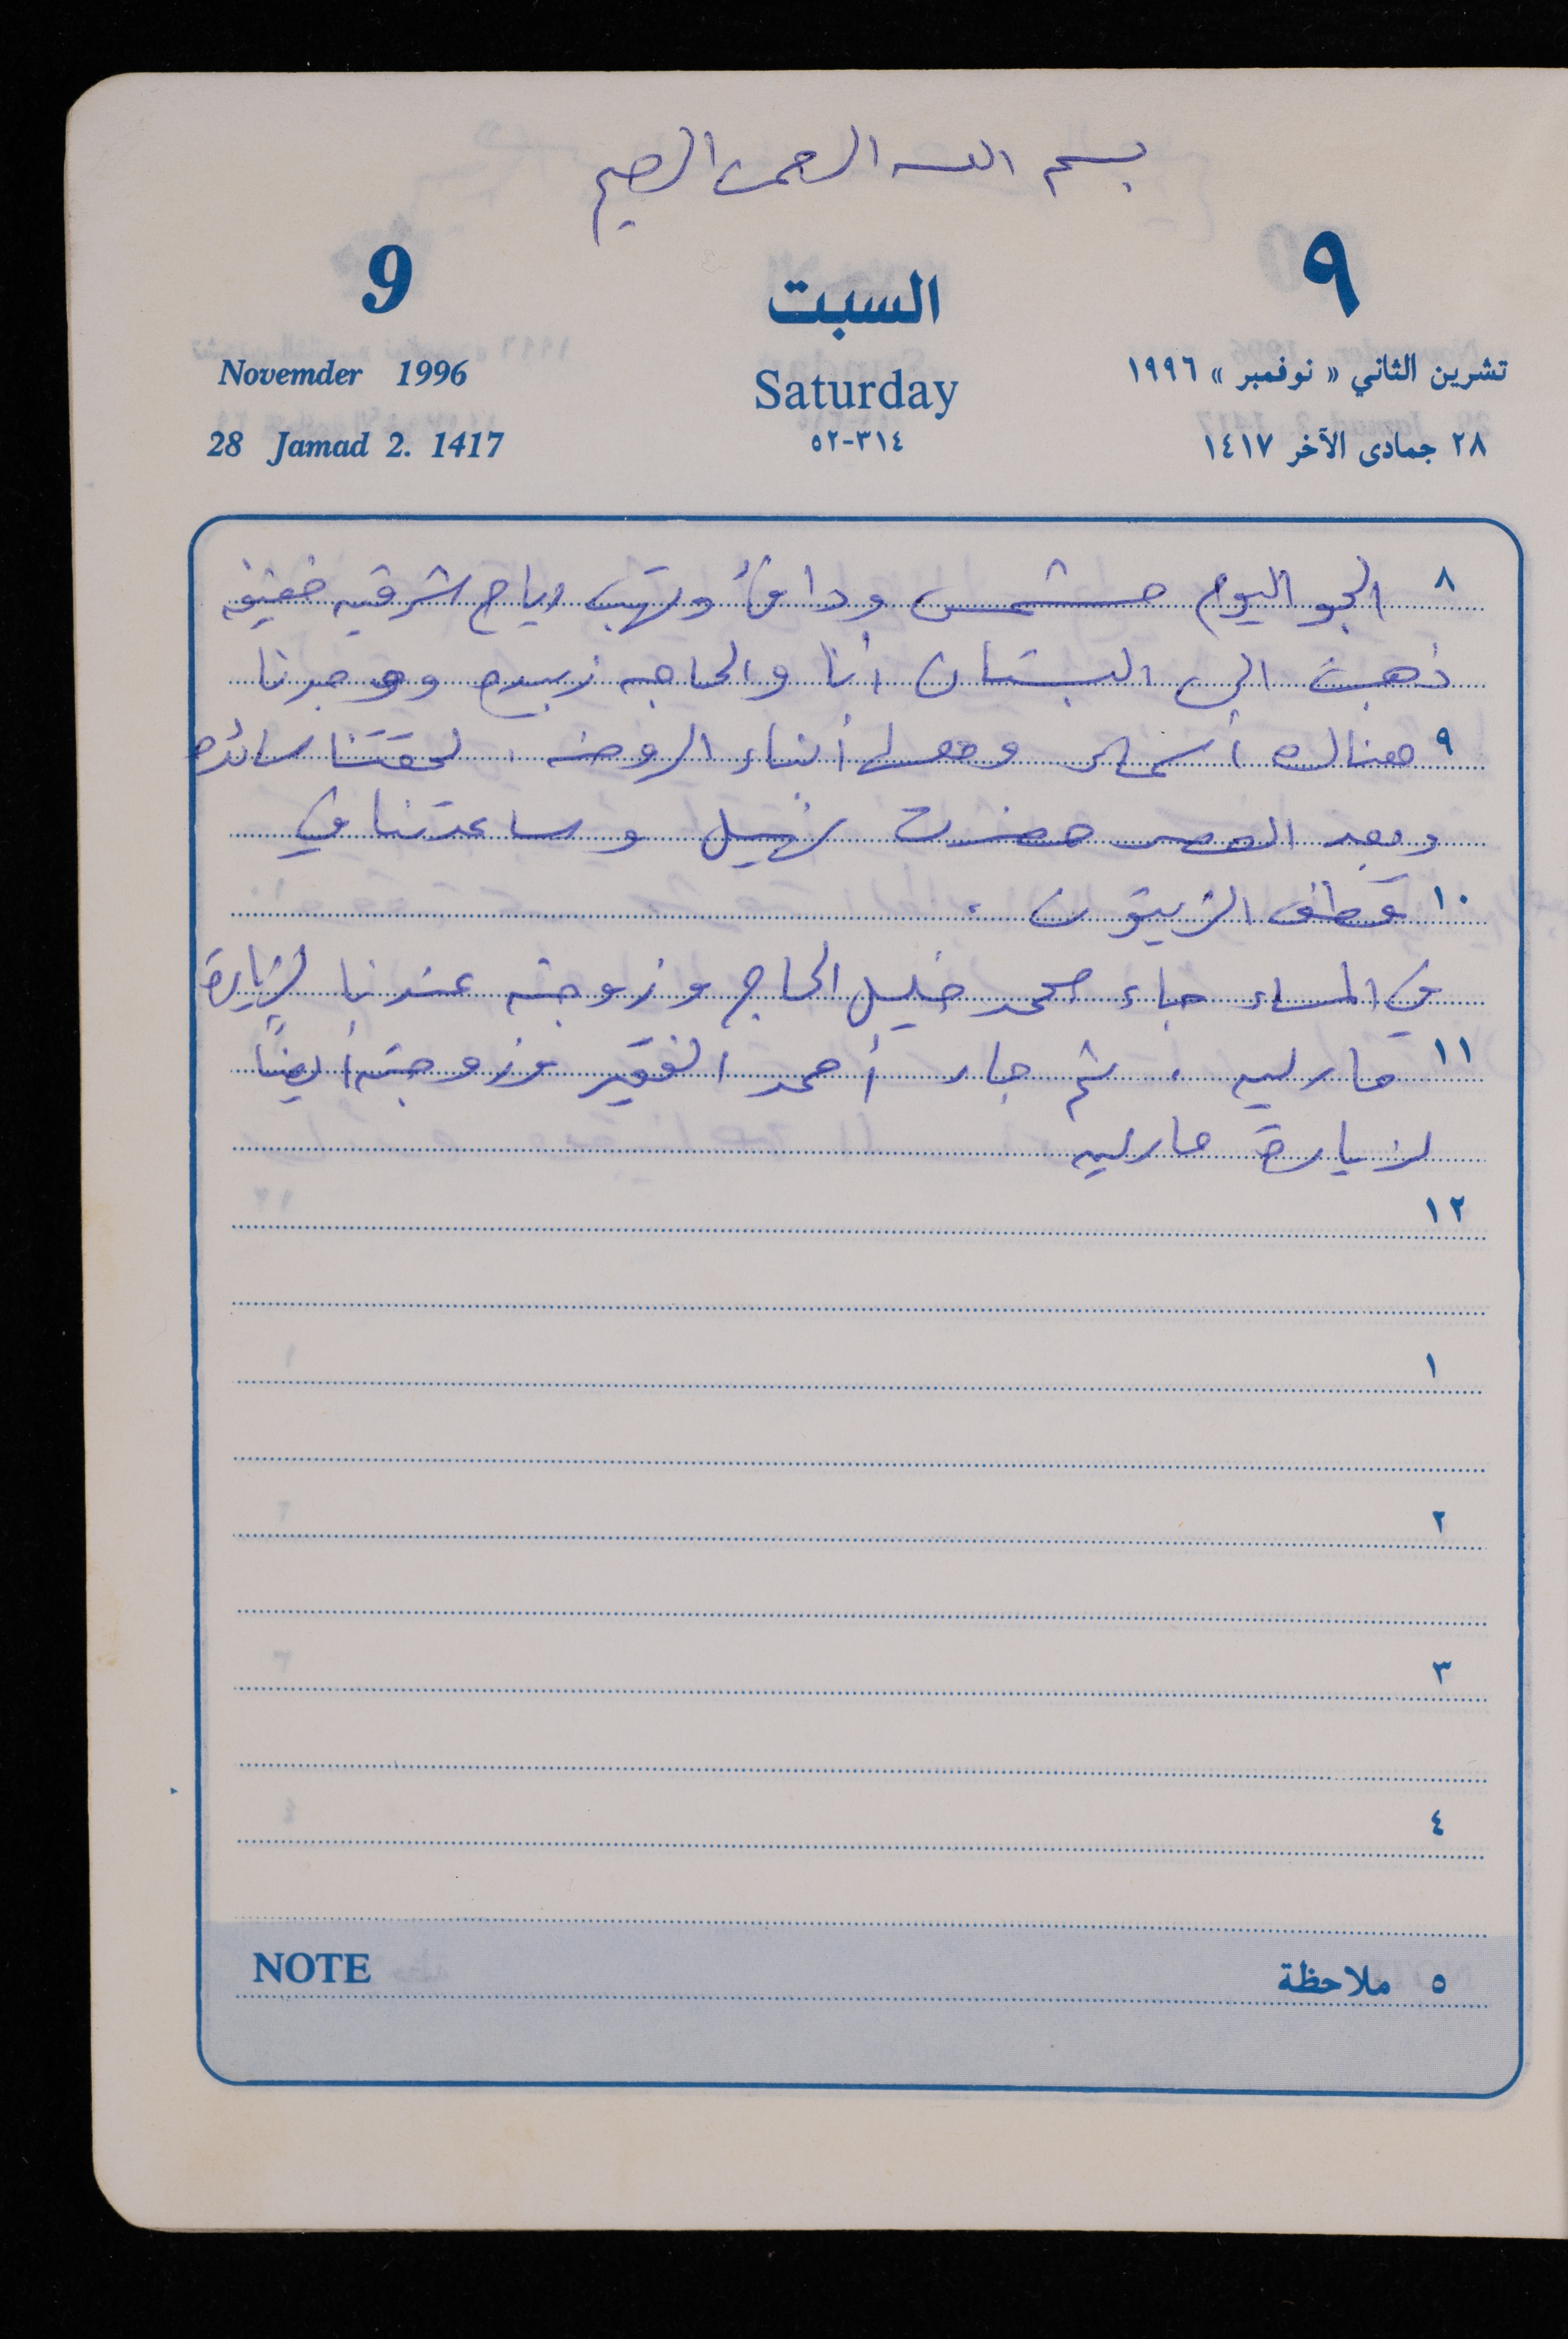 بسم الله الرحمن الرحيم
9 السبت ٩
Novemder 1996 Saturday تشرين الثاني « نوفمبر » ١٩٩٦
28 Jamad 2. 1417 ٣١٤-٥٢ ٢٨ جمادى الآخر ١٤١٧
٨ الجو اليوم مشمس ودافئ وتهب رياح شرقيه خفيفه
ذهبت الى البستان أنا والحاجه زبيده ووجدنا
٩ هنالك أسماء ومعها أبناء الروضه . لحقتنا سائده
وبعد العصر حضرت نهيل وساعدتنا في
١٠ قطف الزيتون .
في المساء جاء محمد خليل الحاج وزوجته عندنا لزيارة
١١ ماريه . ثم جاء أحمد الفقير وزوجته أيضاً
لزيارة ماريه
١٢
١
٢
٣
٤
NOTE ٥ ملاحظة